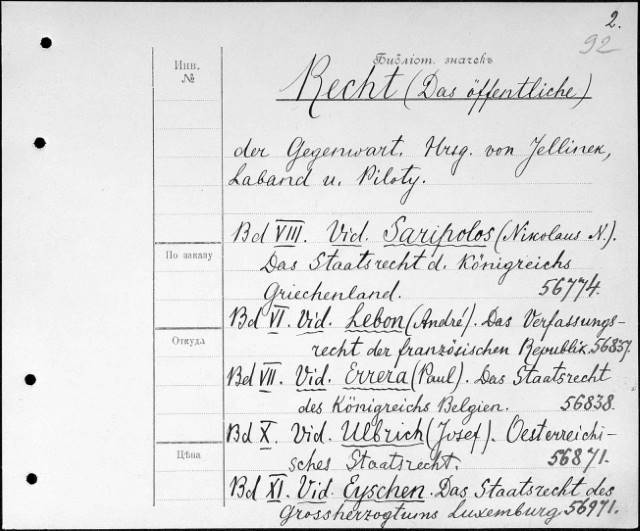 2.
92
Инв.
№
Библіот. значекъ
Recht (Das öffentliche)
der Gegenwart. Hrsg. von Jellinek,
Laband u. Piloty.
Bd VIII. Vid. Saripolos (Nikolaus N.).
По заказу
Das Staatsrecht d. Königreichs
Griechenland. 56774.
Bd VI. Vid. Lebon (André). Das Verfassungs-
Откуда
recht der französischen Republik. 56837.
Bd VII. Vid. Errera (Paul). Das Staatsrecht
des Königreichs Belgien. 56838.
Bd X. Vid. Ulbrich (Josef). Oesterreichi-
Цѣна
sches Staatsrecht. 56871.
Bd XI. Vid. Eyschen. Das Staatsrecht des
Grossherzogtums Luxemburg 56971.